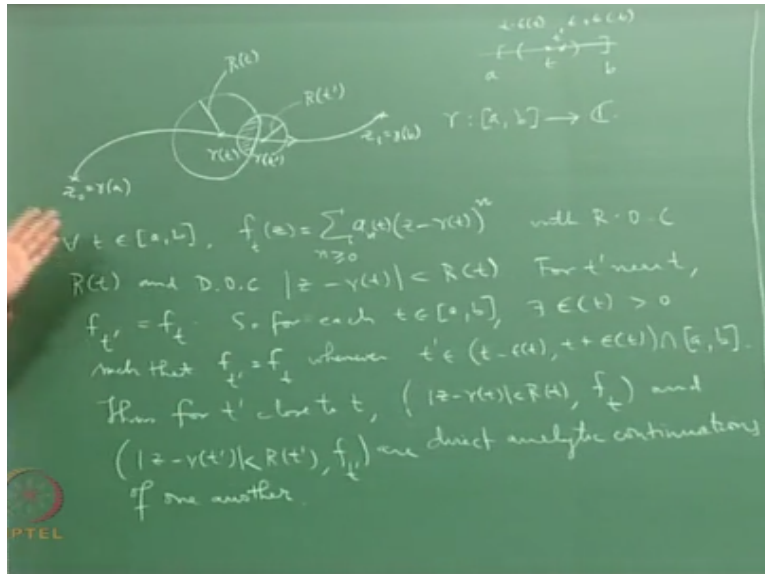 t-ϵ(t) t' t+ϵ(t)
a t b
R(t)
R(t')
γ : [a, b] → ℂ.
γ(t) γ(t') z₁=γ(b)
z₀=γ(a)
∀ t ∈ [a, b], f_t(z) = ∑_{n≥0} a_n(t)(z-γ(t))^n with R.O.C
R(t) and D.O.C |z-γ(t)| < R(t) For t' near t,
f_{t'} = f_t. So for each t ∈ [a, b], ∃ ϵ(t) > 0
such that f_{t'} = f_t whenever t' ∈ (t-ϵ(t), t+ϵ(t)) ∩ [a, b].
Thus for t' close to t, (|z-γ(t)| < R(t), f_t) and
(|z-γ(t')| < R(t'), f_{t'}) are direct analytic continuations
of one another.
PTEL